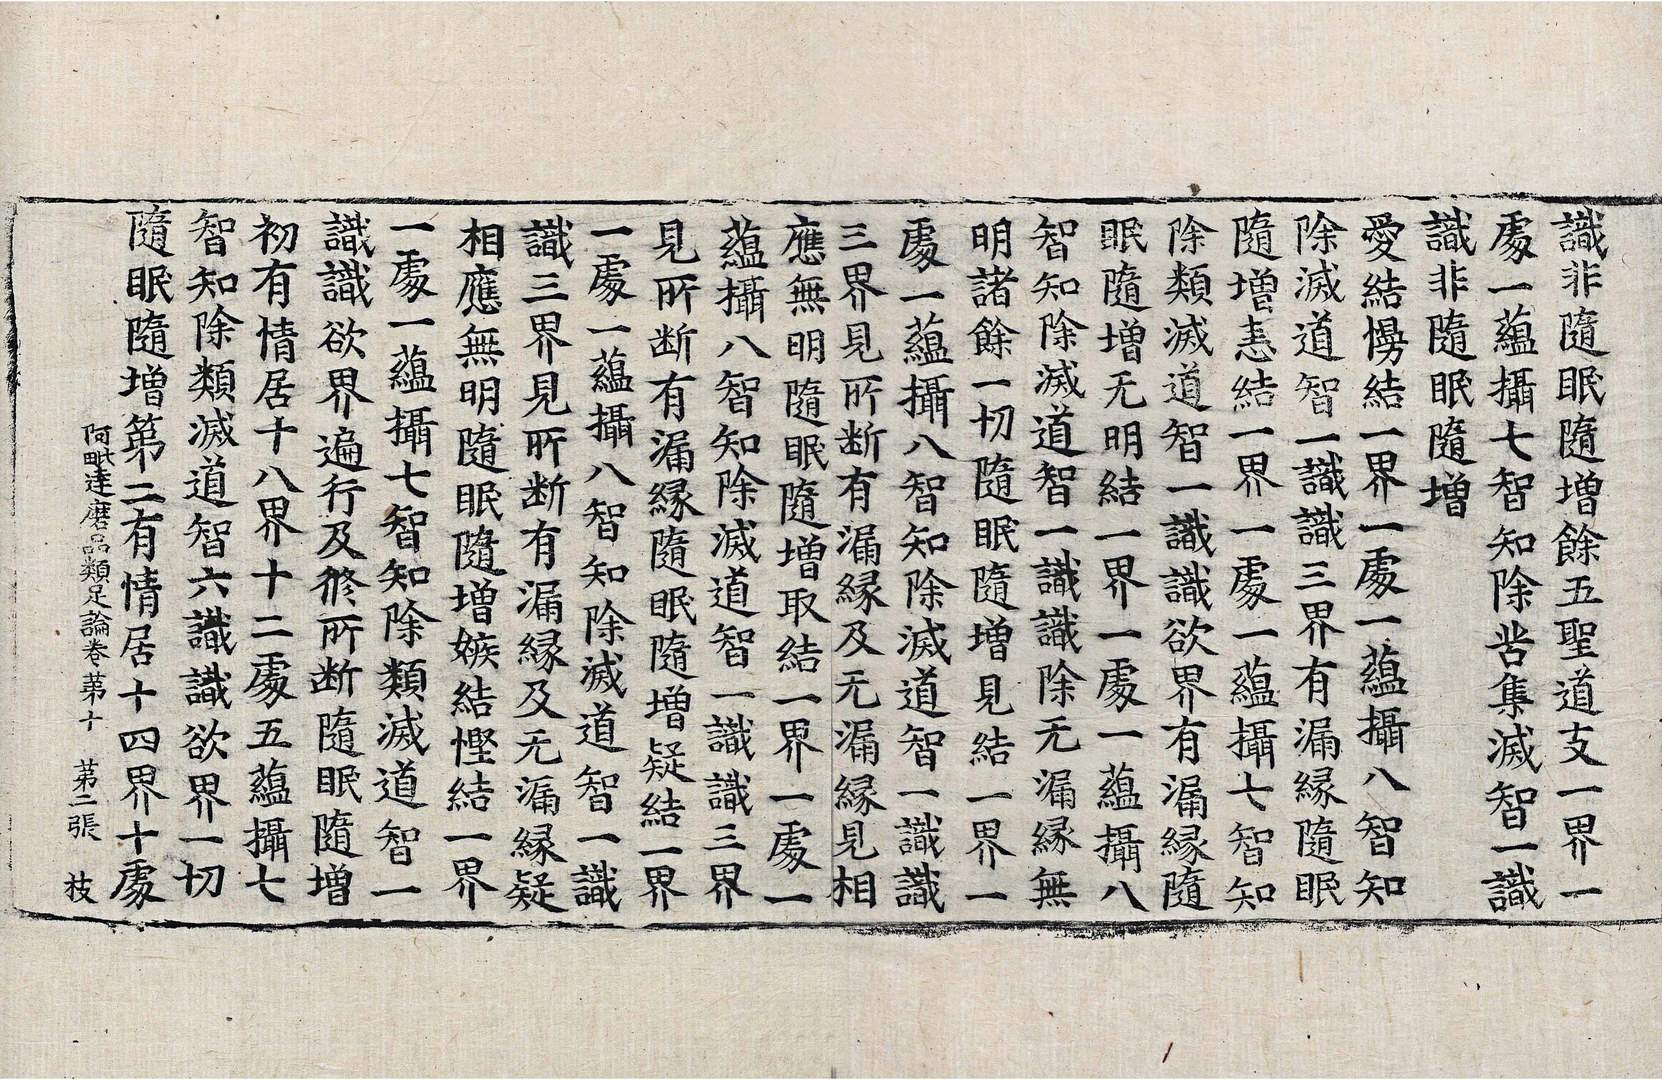 識非隨眠隨增餘五聖道支一界一
處一蘊攝七智知除苦集滅智一識
識非隨眠隨增
愛結慢結一界一處一蘊攝八智知
除滅道智一識識三界有漏緣隨眠
隨增恚結一界一處一蘊攝七智知
除類滅道智一識識欲界有漏緣隨
眠隨增无明結一界一處一蘊攝八
智知除滅道智一識識除无漏緣無
明諸餘一切隨眠隨增見結一界一
處一蘊攝八智知除滅道智一識識
三界見所断有漏緣及无漏緣見相
應無明隨眠隨增取結一界一處一
蘊攝八智知除滅道智一識識三界
見所断有漏緣隨眠隨增疑結一界
一處一蘊攝八智知除滅道智一識
識三界見所断有漏緣及无漏緣疑
相應無明隨眠隨增嫉結慳結一界
一處一蘊攝七智知除類滅道智一
識識欲界遍行及修所断隨眠隨增
初有情居十八界十二處五蘊攝七
智知除類滅道智六識識欲界一切
隨眠隨增第二有情居十四界十處
阿毗達磨品類足論卷第十 第二張 枝